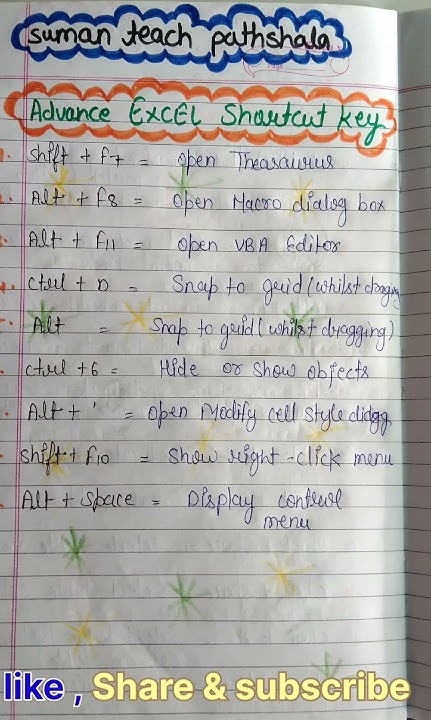 suman teach pathshala
Advance EXCEL Shortcut key
Shift + F7 = open Theasaurus
Alt + F8 = Open Macro dialog box
Alt + F11 = open VBA Editor
Ctrl + D = Snap to grid (whilst dragging
Alt = Snap to grid (whilst dragging)
Ctrl + 6 = Hide or Show objects
Alt + ' = Open Modify cell style
Shift + F10 = Show right - click menu
Alt + Space = Display control
menu
like , Share & subscribe